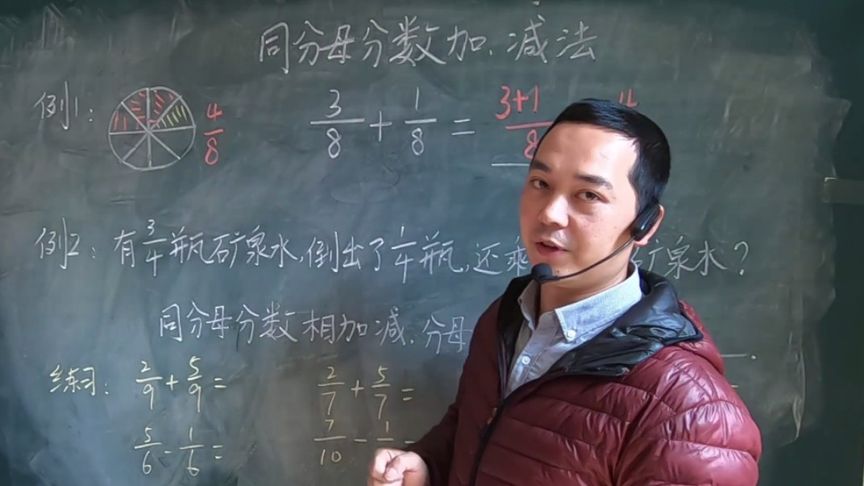 同分母分数加、减法
例1: 4/8 3/8 + 1/8 = 3+1/8 4
例2: 有3/4瓶矿泉水,倒出了1/4瓶,还乘 矿泉水?
同分母分数相加减.分母
练习: 2/9 + 5/9 = 2/7 + 5/7 =
5/6 - 1/6 = 7/10 - 1